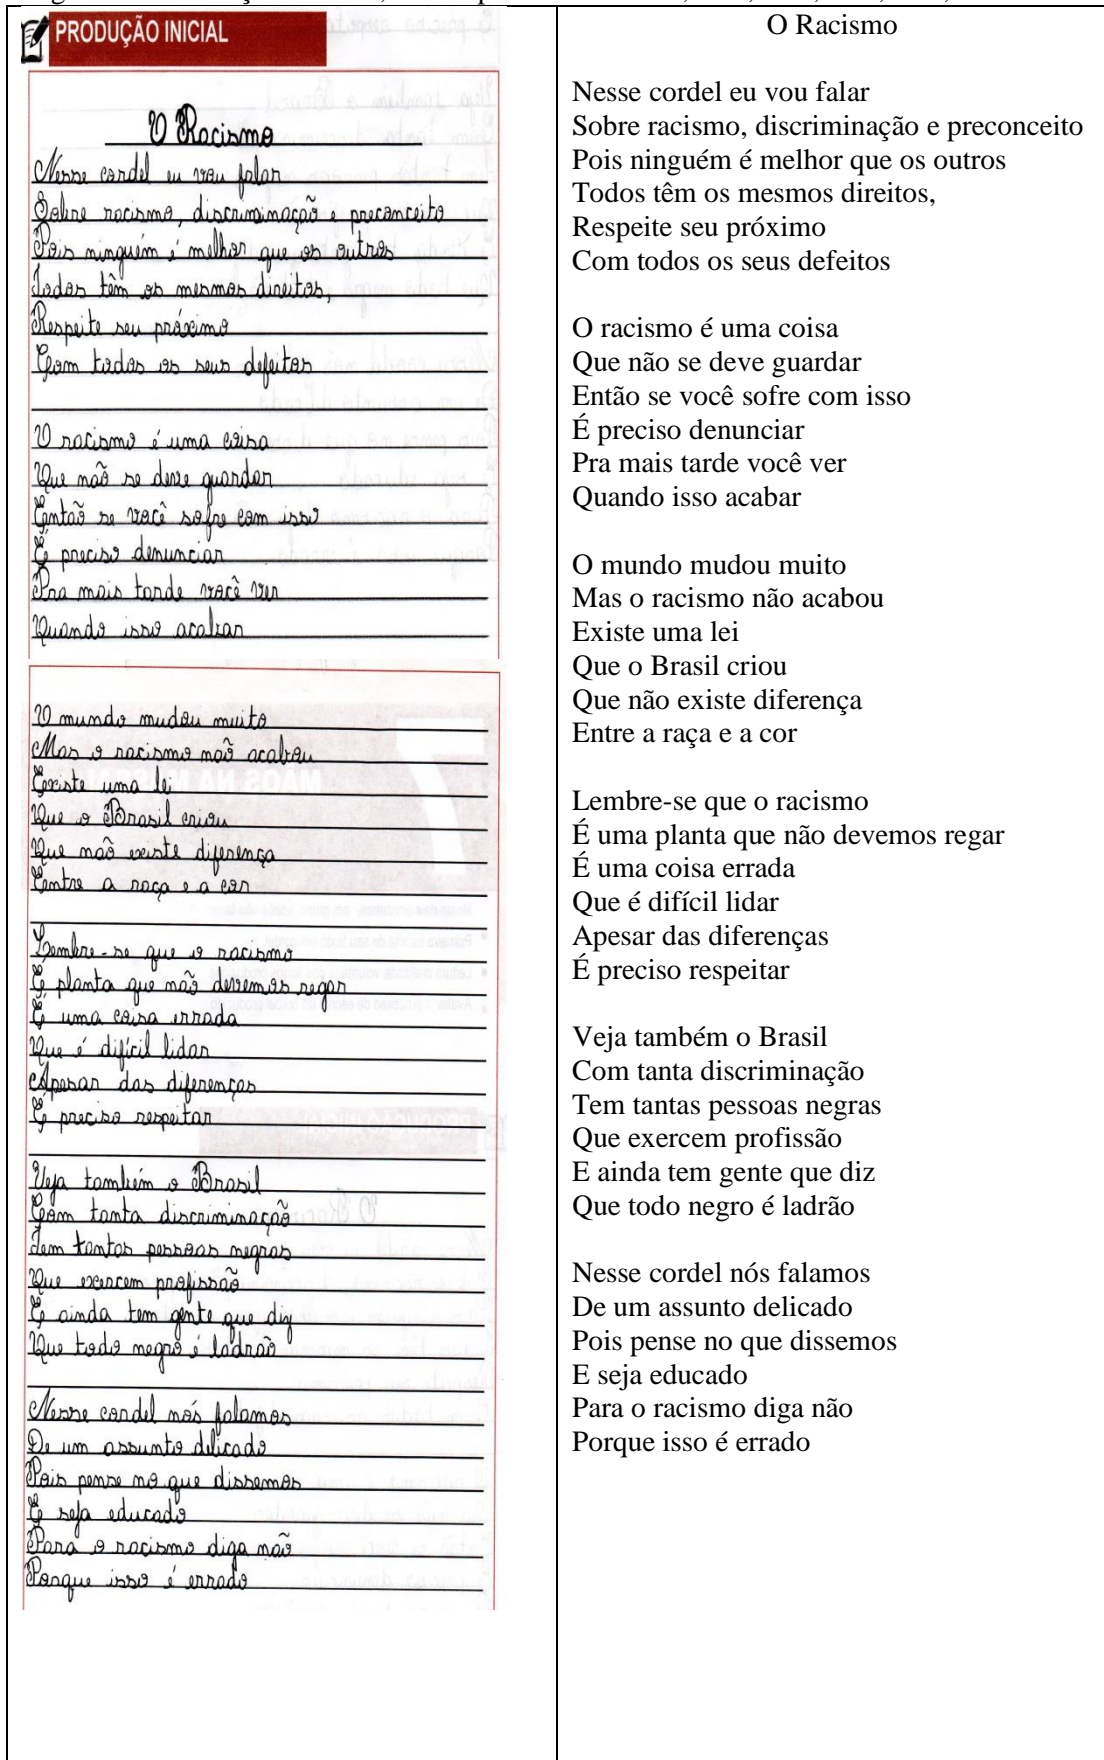 PRODUÇÃO INICIAL
O Racismo
Nesse cordel eu vou falar
Sobre racismo, discriminação e preconceito
Pois ninguém é melhor que os outros
Todos têm os mesmos direitos,
Respeite seu próximo
Com todos os seus defeitos
O racismo é uma coisa
Que não se deve guardar
Então se você sofre com isso
É preciso denunciar
Pra mais tarde você ver
Quando isso acabar
O mundo mudou muito
Mas o racismo não acabou
Existe uma lei
Que o Brasil criou
Que não existe diferença
Entre a raça e a cor
Lembre-se que o racismo
É planta que não devemos regar
É uma coisa errada
Que é difícil lidar
Apesar das diferenças
É preciso respeitar
Veja também o Brasil
Com tanta discriminação
Tem tantas pessoas negras
Que exercem profissão
E ainda tem gente que diz
Que todo negro é ladrão
Nesse cordel nós falamos
De um assunto delicado
Pois pense no que dissemos
E seja educado
Para o racismo diga não
Porque isso é errado
O Racismo
Nesse cordel eu vou falar
Sobre racismo, discriminação e preconceito
Pois ninguém é melhor que os outros
Todos têm os mesmos direitos,
Respeite seu próximo
Com todos os seus defeitos
O racismo é uma coisa
Que não se deve guardar
Então se você sofre com isso
É preciso denunciar
Pra mais tarde você ver
Quando isso acabar
O mundo mudou muito
Mas o racismo não acabou
Existe uma lei
Que o Brasil criou
Que não existe diferença
Entre a raça e a cor
Lembre-se que o racismo
É uma planta que não devemos regar
É uma coisa errada
Que é difícil lidar
Apesar das diferenças
É preciso respeitar
Veja também o Brasil
Com tanta discriminação
Tem tantas pessoas negras
Que exercem profissão
E ainda tem gente que diz
Que todo negro é ladrão
Nesse cordel nós falamos
De um assunto delicado
Pois pense no que dissemos
E seja educado
Para o racismo diga não
Porque isso é errado